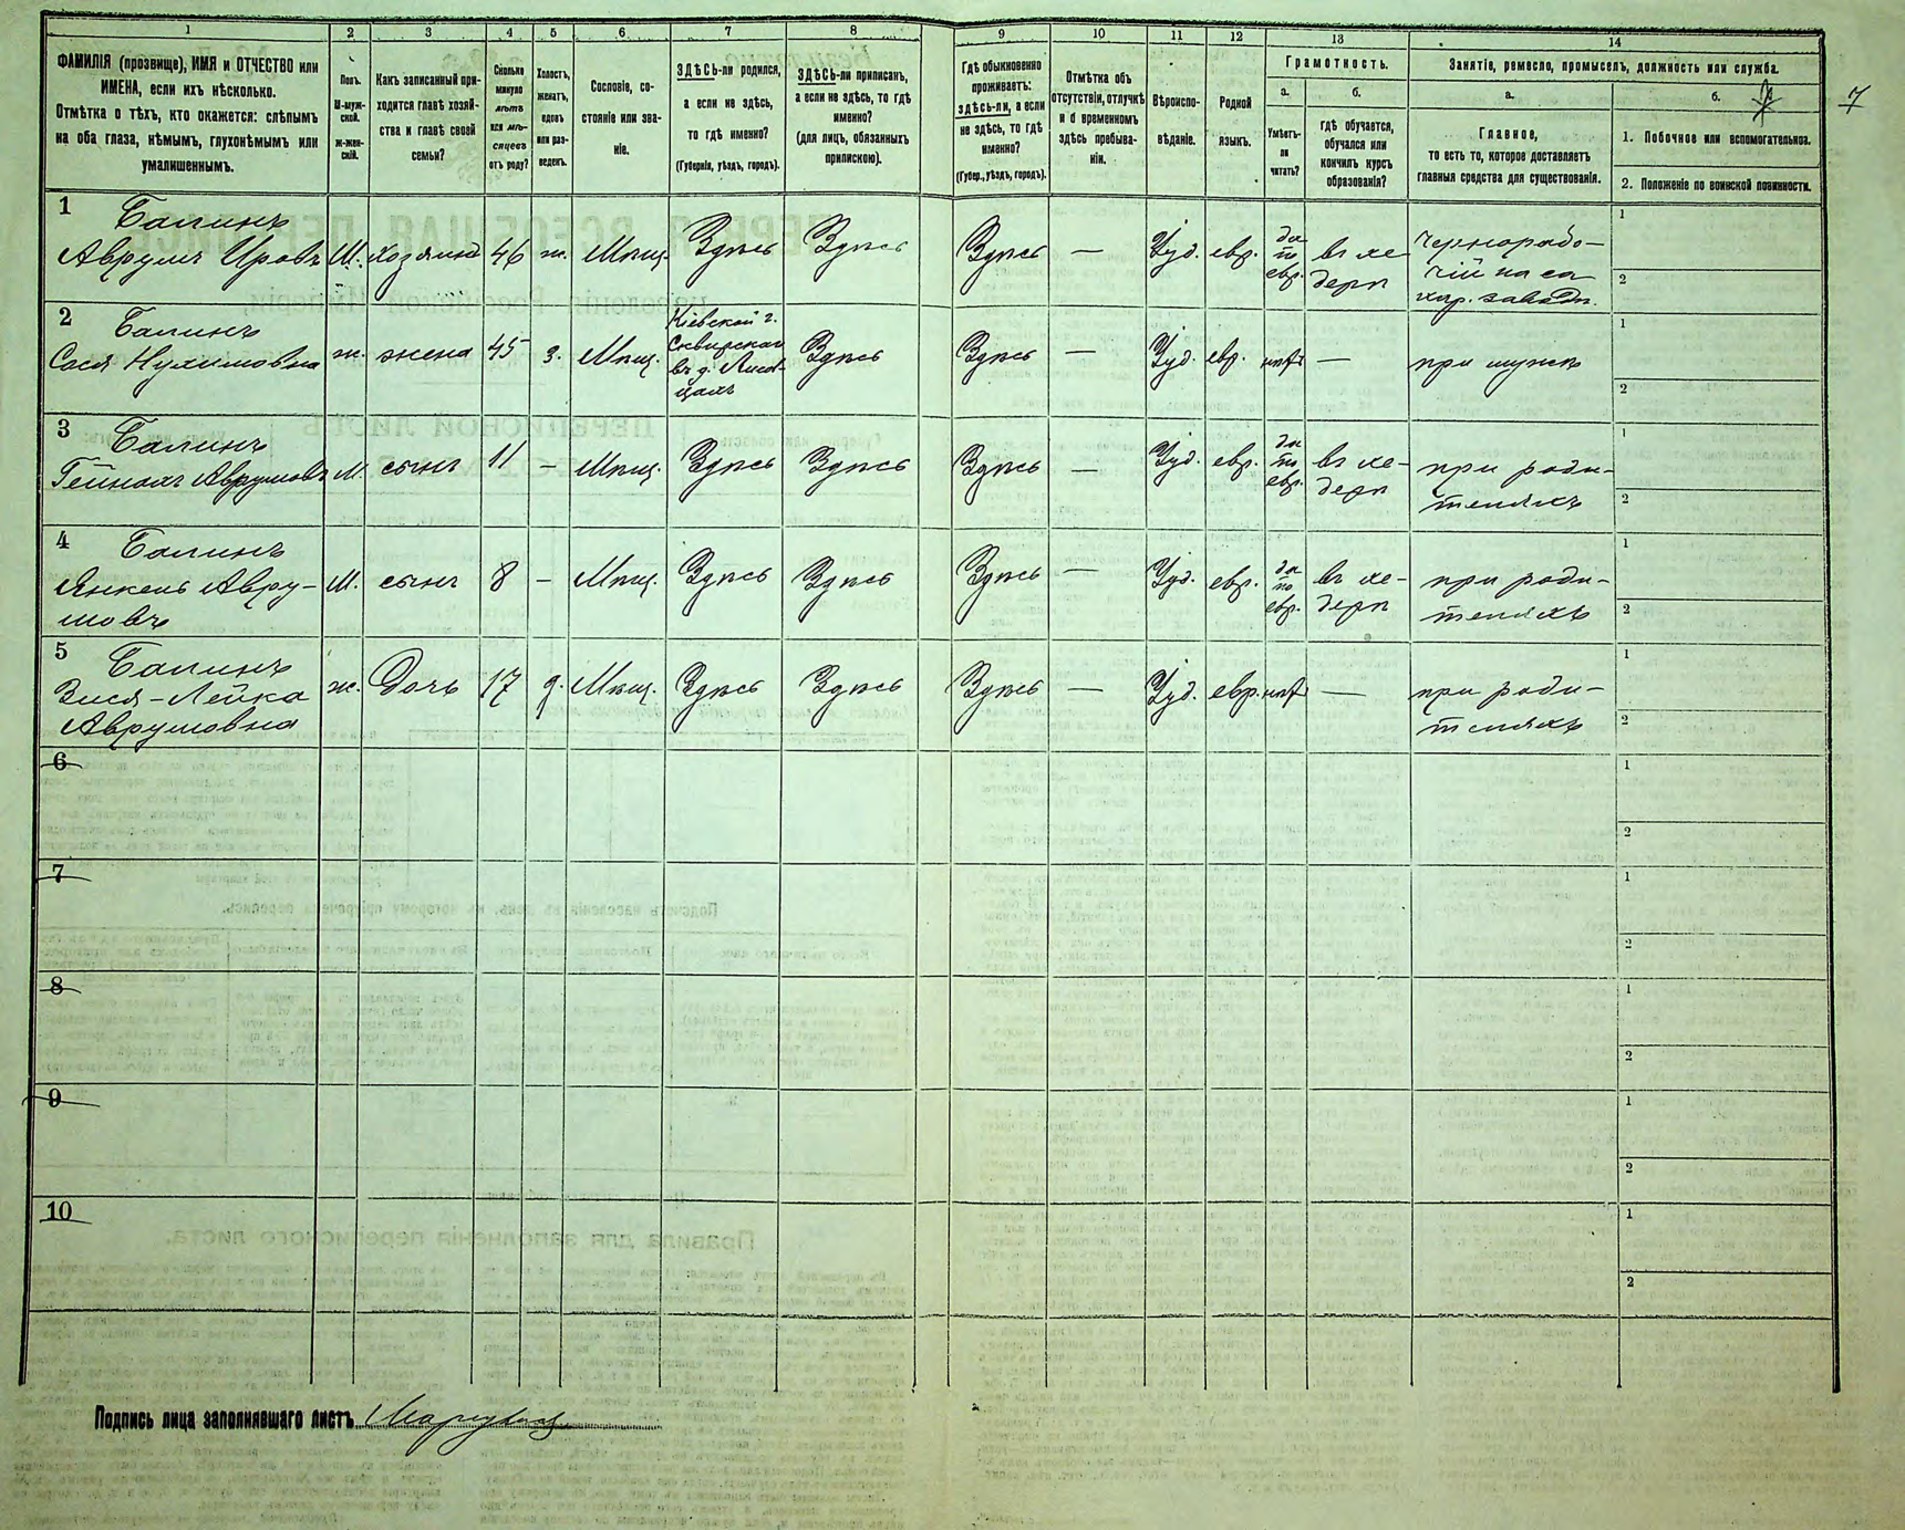 1 2 3 4 5 6 7 8 9 10 11 12 13 14
ФАМИЛІЯ (прозвище), ИМЯ и ОТЧЕСТВО или
ИМЕНА, если ихъ нѣсколько.
Отмѣтка о тѣхъ, кто окажется: слѣпымъ
на оба глаза, нѣмымъ, глухонѣмымъ или
умалишеннымъ.
Полъ.
М-муж-
ской.
ж-жен-
скій.
Какъ записанный при-
ходится главѣ хозяй-
ства и главѣ своей
семьи?
Сколько
минуло
лѣтъ
или мѣ-
сяцевъ
отъ роду?
Холостъ,
женатъ,
вдовъ
или раз-
веденъ.
Сословіе, со-
стояніе или зва-
ніе.
ЗДѢСЬ-ли родился,
а если не здѣсь,
то гдѣ именно?
(Губернія, уѣздъ, городъ).
ЗДѢСЬ-ли приписанъ,
а если не здѣсь, то гдѣ
именно?
(для лицъ, обязанныхъ
припискою).
Гдѣ обыкновенно
проживаетъ:
здѣсь-ли, а если
не здѣсь, то гдѣ
именно?
(Губер., уѣздъ, городъ).
Отмѣтка объ
отсутствіи, отлучкѣ
и о временномъ
здѣсь пребыва-
ніи.
Вѣроиспо-
вѣданіе.
Родной
языкъ.
Грамотность.
а.
Умѣетъ-
ли
читать?
б.
гдѣ обучается,
обучался или
кончилъ курсъ
образованія?
Занятіе, ремесло, промыселъ, должность или служба.
а.
Главное,
то есть то, которое доставляетъ
главныя средства для существованія.
б.
1. Побочное или вспомогательное.
2. Положеніе по воинской повинности.
7
1
Балинъ
Аврумъ Ировъ
М.
хозяинъ
46
ж.
Мѣщ.
Здѣсь
Здѣсь
Здѣсь
—
Іуд.
евр.
да
по
евр.
въ хе
дерѣ
чернорабо-
чій на са
хар. заводѣ.
1
2
2
Балинъ
Сося Нухимовна
ж.
жена
45
з.
Мѣщ.
Кіевской г.
Сквирскаго
въ д.
Здѣсь
Здѣсь
—
Іуд.
евр.
нѣтъ
—
при мужѣ
1
2
3
Балинъ
Гейнахъ Аврумовъ
М.
сынъ
11
–
Мѣщ.
Здѣсь
Здѣсь
Здѣсь
—
Іуд.
евр.
да
по
евр.
въ хе-
дерѣ
при роди-
теляхъ
1
2
4
Балинъ
Янкель Авру-
мовъ
М.
сынъ
8
–
Мѣщ.
Здѣсь
Здѣсь
Здѣсь
—
Іуд.
евр.
да
по
евр.
въ хе-
дерѣ
при роди-
теляхъ
1
2
5
Балинъ
Зися-Лейка
Аврумовна
ж.
Дочь
17
д.
Мѣщ.
Здѣсь
Здѣсь
Здѣсь
—
Іуд.
евр.
нѣтъ
—
при роди-
теляхъ
1
2
6
1
2
7
1
2
8
1
2
9
1
2
10
1
2
Подпись лица заполнявшаго листъ